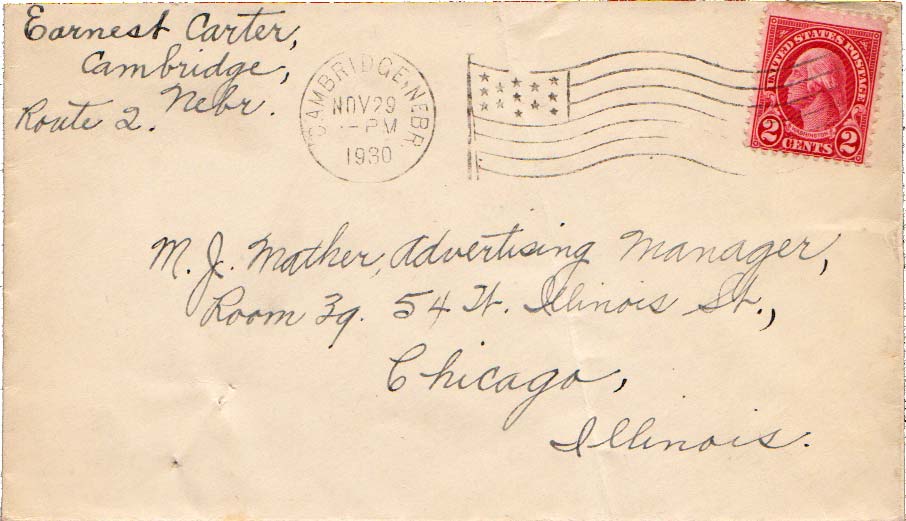 Earnest Carter,
Cambridge,
Nebr.
Route 2.
CAMBRIDGE, NEBR.
NOV 29
- PM
1930
UNITED STATES POSTAGE
WASHINGTON
2 CENTS 2
M. J. Mather, Advertising Manager,
Room 39. 54 W. Illinois St.,
Chicago,
Illinois.